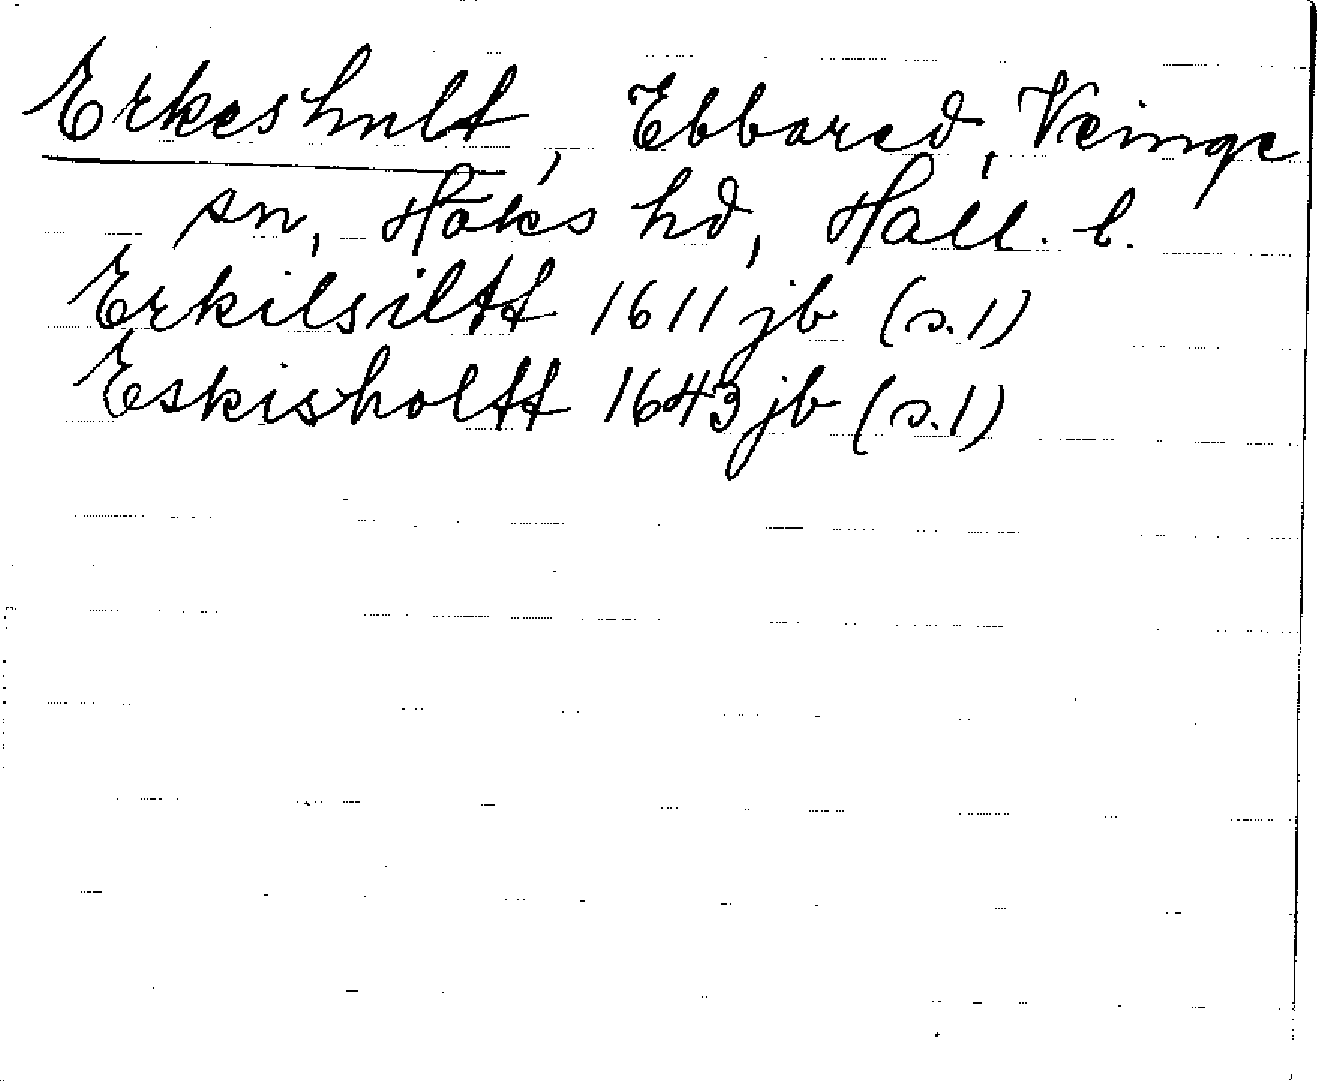 Erkeshult, Ebbared, Veinge
sn, Höks hd, Hall. l.
Erkilsiltt 1611 jb (s.1)
Eskisholtt 1643 jb (s.1)